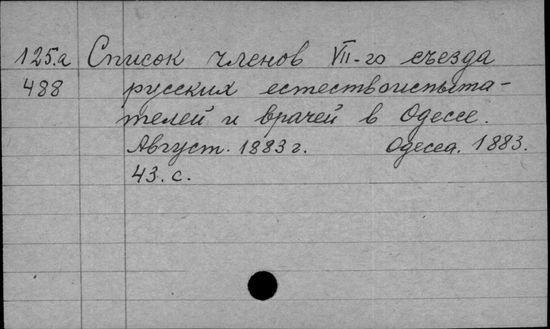 125.a Список членов VII-го съезда
488 русских естествоиспыта-
телей и врачей в Одессе.
Август. 1883 г. Одесса. 1883.
43. с.